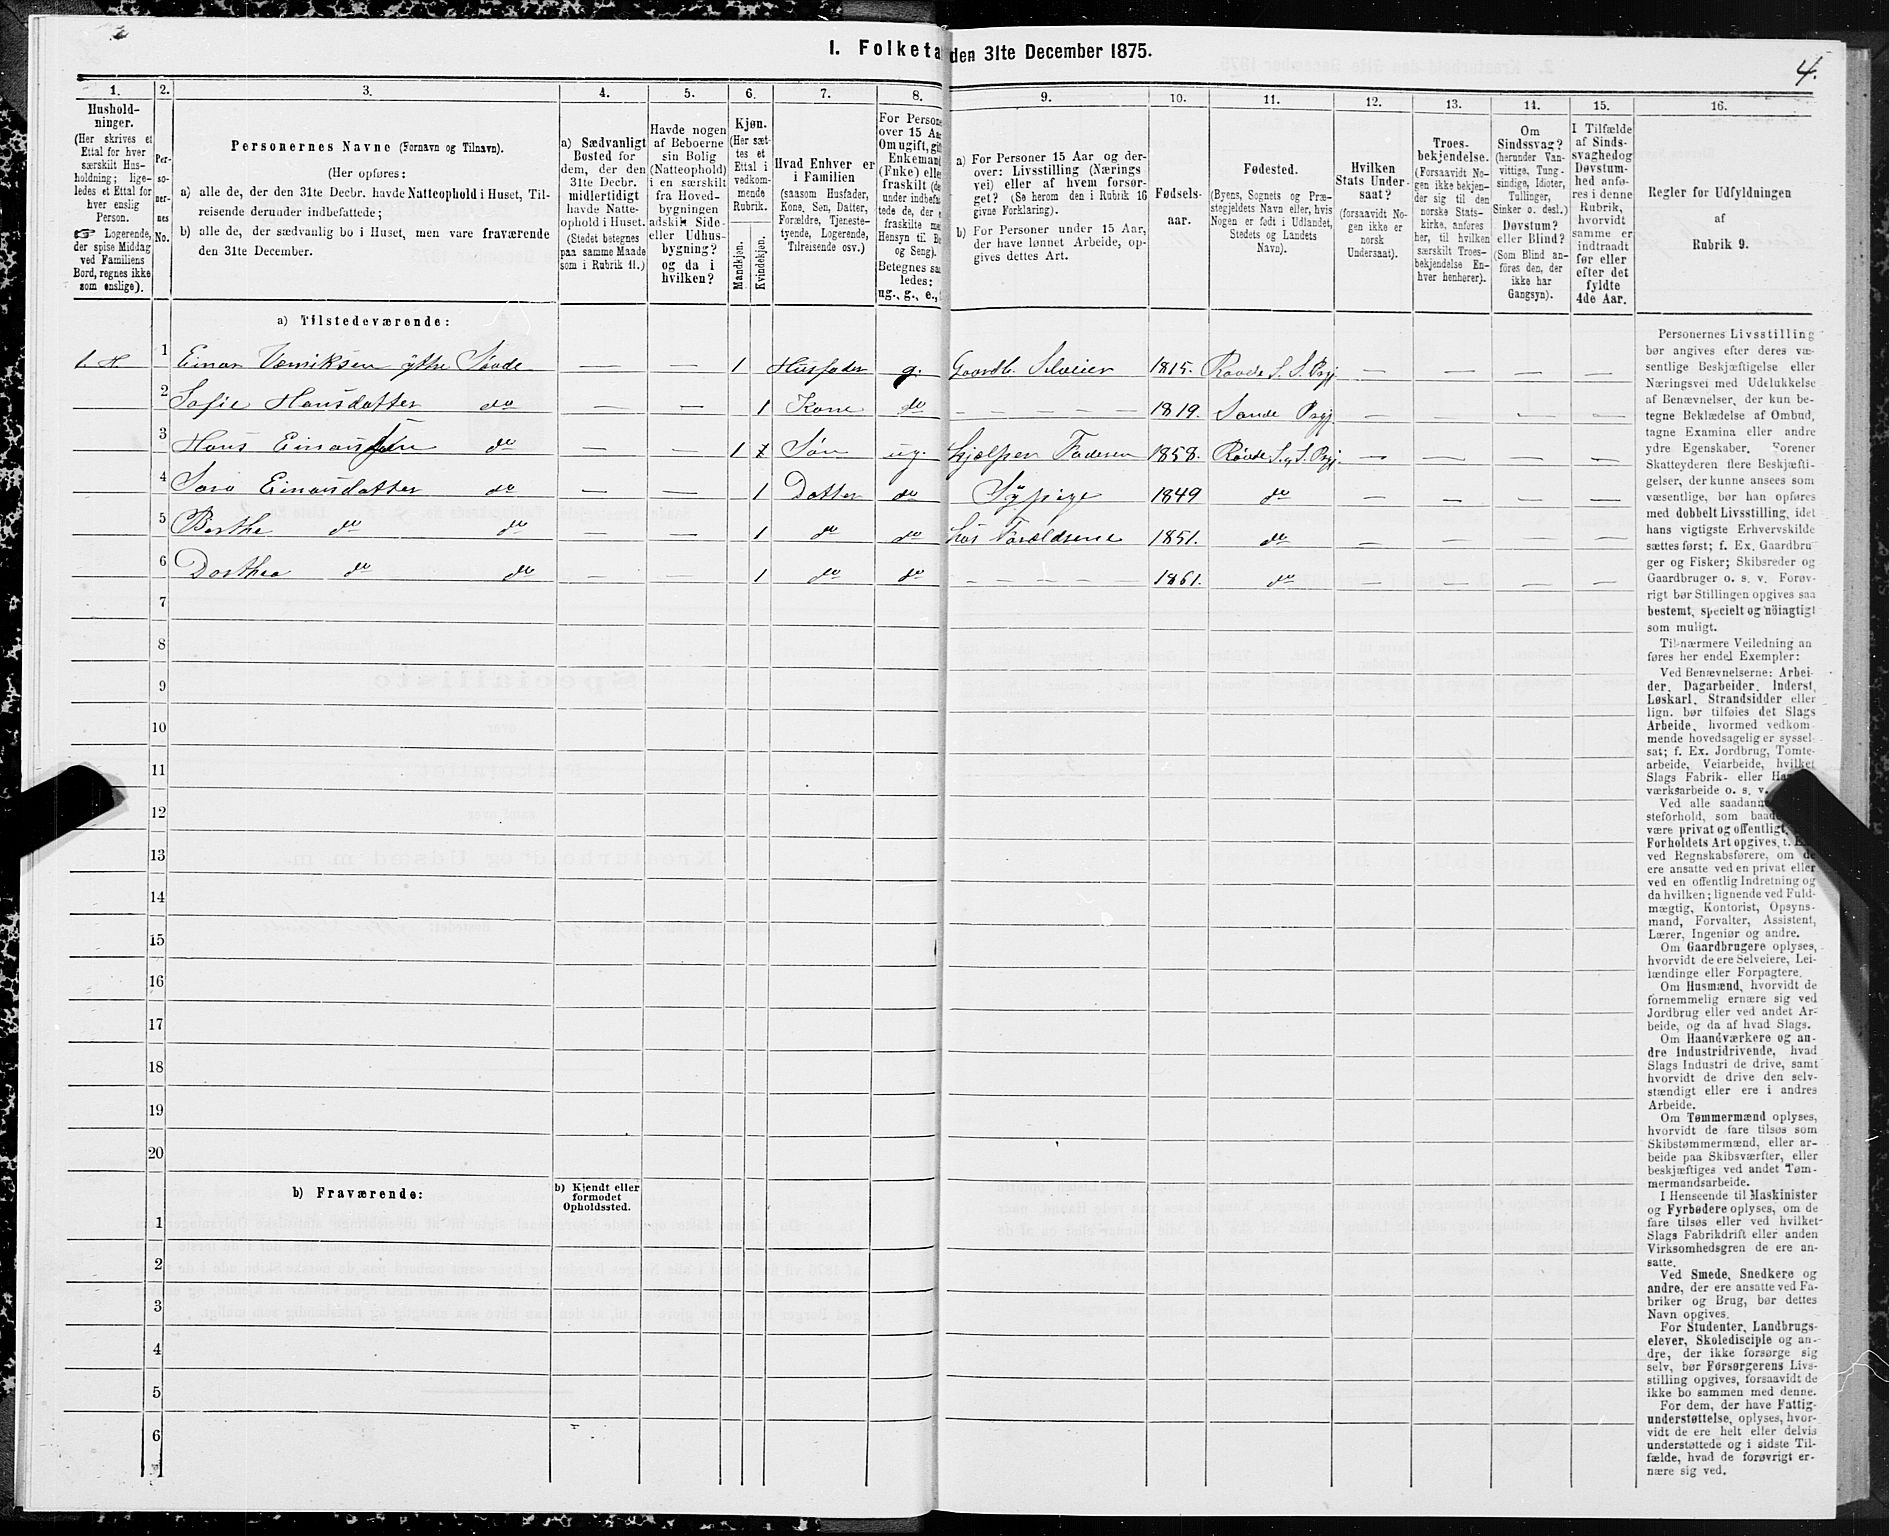 1. Folketa den 31te December 1875.
4.
1. 2. 3. 4. 5. 6. 7. 8. 9. 10. 11. 12. 13. 14. 15. 16.
Hushold-
ninger.
(Her skrives et
Ettal for hver
særskilt Hus-
holdning; lige-
ledes et Ettal for
hver enslig
Person.
☞ Logerende,
der spise Middag
ved Familiens
Bord, regnes ikke
som enslige).
Per-
so-
ner-
nes
No.
Personernes Navne (Fornavn og Tilnavn).
(Her opføres:
a) alle de, der den 31te Decbr. havde Natteophold i Huset, Til-
reisende derunder indbefattede;
b) alle de, der sædvanlig bo i Huset, men vare fraværende
den 31te December.
a) Sædvanligt
Bosted for
dem, der den
31te Decbr.
midlertidigt
havde Natte-
ophold i Huset.
(Stedet betegnes
paa samme Maade
som i Rubrik 11.)
Havde nogen
af Beboerne
sin Bolig
(Natteophold)
i en særskilt
fra Hoved-
bygningen
adskilt Side-
eller Udhus-
bygning?
og da i
hvilken?
Kjøn.
(Her sæt-
tes et
Ettal i
vedkom-
mende
Rubrik.
Mandkjøn.
Kvindekjøn.
Hvad Enhver er
i Familien
(saasom Husfader,
Kone, Søn, Datter,
Forældre, Tjeneste-
tyende, Logerende,
Tilreisende osv.)
For Persone
over 15 Aa
Om ugift, gi
Enkeman
(Enke) elle
fraskilt (de
under indbefa
tede de, der e
fraskilte me
Hensyn til B
og Seng).
Betegnes saa
ledes:
ug., g., e.,
a) For Personer 15 Aar og der-
over: Livsstilling (Nærings
vei) eller af hvem forsør-
get? (Se herom den i Rubrik 16
givne Forklaring).
b) For Personer under 15 Aar,
der have lønnet Arbeide, op-
gives dettes Art.
Fødsels-
aar.
Fødested.
(Byens, Sognets og Præ-
stegjeldets Navn eller, hvis
Nogen er født i Udlandet,
Stedets og Landets
Navn).
Hvilken
Stats Under-
saat?
(forsaavidt No-
gen ikke er
norsk
Undersaat).
Troes-
bekjendelse.
(Forsaavidt No-
gen ikke bekjen-
der sig til den
norske Stats-
kirke, anføres
her, til hvilken
særskilt Troes-
bekjendelse En-
hver henhører).
Om
Sindssvag?
(herunder Van-
vittige, Tung-
sindige, Idioter,
Tullinger,
Sinker o. desl.)
Døvstum?
eller Blind?
(Som Blind an-
føres den, der
ikke har
Gangsyn).
I Tilfælde
af Sinds-
svaghedog
Døvstum-
hed anfø-
res i denne
Rubrik,
hvorvidt
samme er
indtraadt
før eller
efter det
fyldte
4de Aar.
Regler for Udfyldningen
af
Rubrik 9.
a) Tilstedeværende:
1. H. 1 Einar Henriksen ytre Sande — — 1 Husfader g. Gaardb. Selveier 1815. Raade S. S. Pgj. — — — —
2 Sofie Hansdatter do — — 1 Kone do — — — — 1819. Sande Pgj. — — — —
3 Hans Einarsen do — — 1 Søn ug. hjælper Faderen 1858. Raade S., S. Pgj. — — — —
4 Einarsdatter do — — 1 Datter do Sypige 1849 do — — — —
5 Berthe do do — — 1 do do hos Forældrene 1851. do — — — —
6 Dorthea do do — — 1 do do — — — — 1861. do — — — —
7
8
9
10
11
12
13
14
15
16
17
18
19
20
b) Fraværende:
b) Kjendt eller
formodet
Opholdssted.
1
2
3
4
5
6
Personernes Livsstilling
bør angives efter deres væ-
sentlige Beskjæftigelse eller
Næringsvei med Udelukkelse
af Benævnelser, der kun be-
tegne Beklædelse af Ombud,
tagne Examina eller andre
ydre Egenskaber. Forener
Skatteyderen flere Beskjæfti-
gelser, der kunne ansees som
væsentlige, bør han opføres
med dobbelt Livsstilling, idet
hans vigtigste Erhvervskilde
sættes først; f. Ex. Gaardbru-
ger og Fisker; Skibsreder og
Gaardbruger o. s. v. Forøv-
rigt bør Stillingen opgives saa
bestemt, specielt og nöiagtigt
som muligt.
Til nærmere Veiledning an
føres her endel Exempler:
Ved Benævnelserne: Arbei-
der, Dagarbeider, Inderst,
Løskarl, Strandsidder eller
lign. bør tilføies det Slags
Arbeide, hvormed vedkom-
mende hovedsagelig er syssel-
sat; f. Ex. Jordbrug, Tomte-
arbeide, Veiarbeide, hvilket
Slags Fabrik- eller Ha
værksarbeide o. s. v.
Ved alle saadann
steforhold, som baad
være privat og offentligt,
Forholdets Art opgives, t. E
ved Regnskabsførere, om de
ere ansatte ved en privat eller
ved en offentlig Indretning og
da hvilken; lignende ved Fuld-
mægtig, Kontorist, Opsyns-
mand, Forvalter, Assistent,
Lærer, Ingeniør og andre.
Om Gaardbrugere oplyses,
hvorvidt de ere Selveiere, Lei-
lændinge eller Forpagtere.
Om Husmænd, hvorvidt de
fornemmelig ernære sig ved
Jordbrug eller ved andet Ar-
beide, og da af hvad Slags.
Om Haandværkere og an-
dre Industridrivende, hvad
Slags Industri de drive, samt
hvorvidt de drive den selv-
stændigt eller ere i andres
Arbeide.
Om Tømmermænd oplyses,
hvorvidt de fare tilsøs som
Skibstømmermænd, eller ar-
beide paa Skibsværfter, eller
beskjæftiges ved andet Tøm-
mermandsarbeide.
I Henseende til Maskinister
og Fyrbødere oplyses, om de
fare tilsøs eller ved hvilket
Slags Fabrikdrift eller anden
Virksomhedsgren de ere an-
satte.
Ved Smede, Snedkere og
andre, der ere ansatte ved Fa-
briker og Brug, bør dettes
Navn opgives.
For Studenter, Landbrugs-
elever, Skoledisciple og an-
dre, der ikke forsørge sig
selv, bør Forsørgerens Livs-
stilling opgives, forsaavidt de
ikke bo sammen med denne.
For dem, der have Fattig-
understøttelse, oplyses, hvor-
vidt de ere helt eller delvis
understøttede og i sidste Til-
fælde, hvad de forøvrigt er-
nære sig ved.